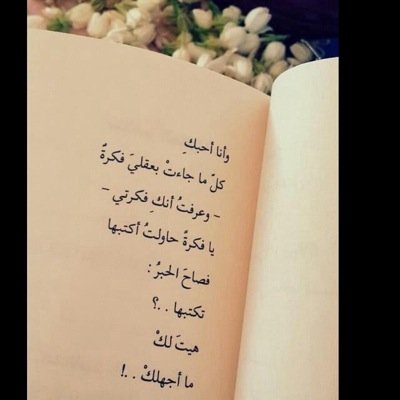 وأنا أحبكِ
كلّ ما جاءتْ بعقليَ فكرةٌ
- وعرفتُ أنكِ فكرتي -
يا فكرةً حاولتُ أكتبها
فصاحَ الحبرُ :
تكتبها . .؟
هيتَ لكْ
ما أجهلكْ . .!